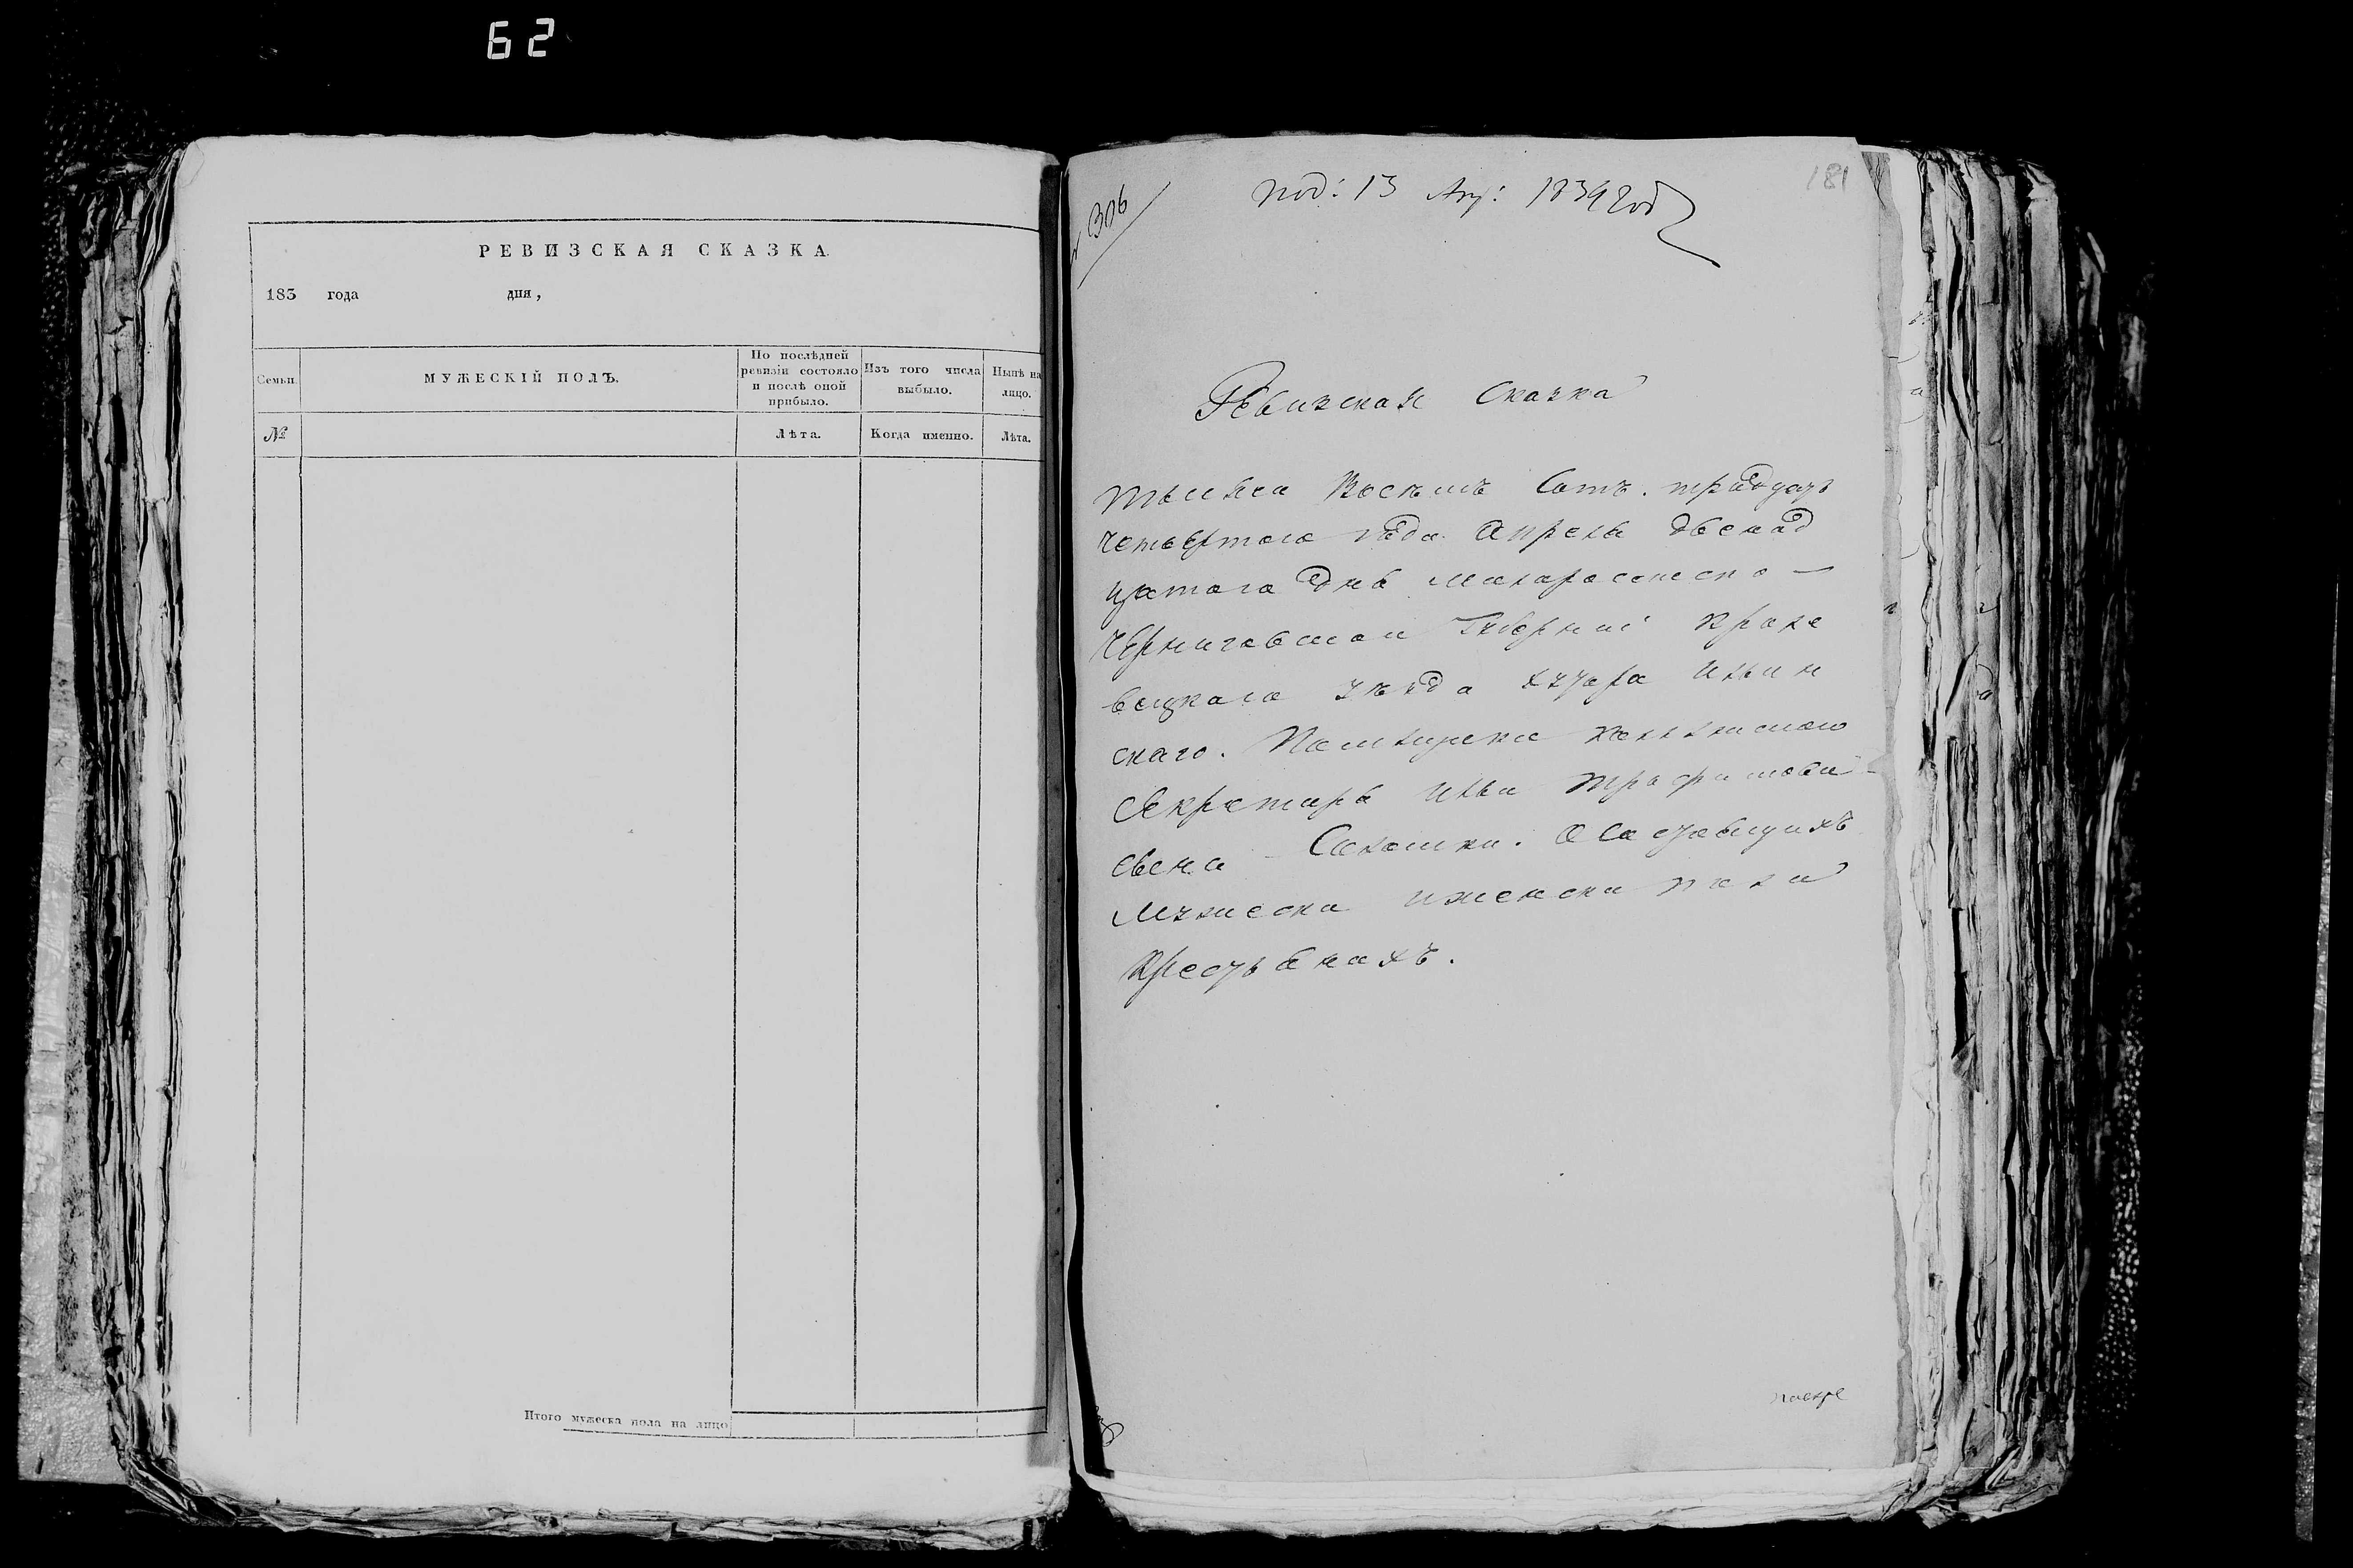 62
РЕВИЗСКАЯ СКАЗКА.
183 года дня,
Семьи.
МУЖЕСКІЙ ПОЛЪ.
По послѣдней ревизіи состояло и послѣ оной прибыло.
Изъ того числа выбыло.
Нынѣ на лицо.
№
Лѣта.
Когда именно.
Лѣта.
Итого мужеска пола на лицо
306
под: 13 Апр: 1834 год
181
Ревизская Сказка
тысяча Восемъ Сотъ. тридцать
четвертого года Апреля двенад
цатого дня Малоросениско —
Черниговской Губерниі Кроле
вецкаго уезда хутора Ильин
скаго. Помещика
Секретаря Ильи Трофимови
Салошки. О Состоящихъ
мужеска иженска пола
Крестьянахъ.